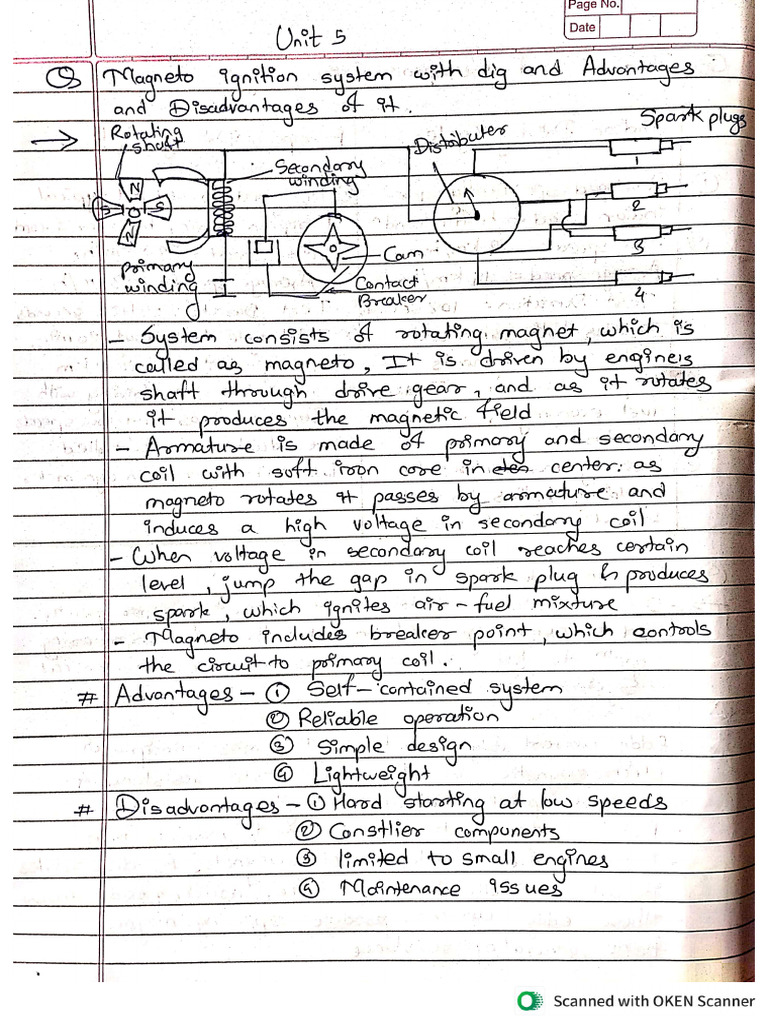 Page No.
Date
Unit 5
Q Magneto ignition system with dig and Advantages
and Disadvantages of it.
Rotating
shaft
Secondary
winding
Distributer
Spark plugs
N
S
S
1
2
3
4
Cam
Primary
winding
Contact
Breaker
- System consists of rotating magnet, which is
called as magneto, It is driven by engines
shaft through drive gear, and as it rotates
it produces the magnetic field
- Armature is made of primary and secondary
coil with soft iron core in center. as
magneto rotates it passes by armature and
induces a high voltage in secondary coil
- When voltage in secondary coil reaches certain
level, jump the gap in spark plug & produces
spark, which ignites air-fuel mixture
- Magneto includes breaker point, which controls
the circuit to primary coil.
# Advantages - ① Self-contained system
② Reliable operation
③ Simple design
④ Lightweight
# Disadvantages - ① Hard starting at low speeds
② Constlier components
③ limited to small engines
④ Maintenance issues
Scanned with OKEN Scanner